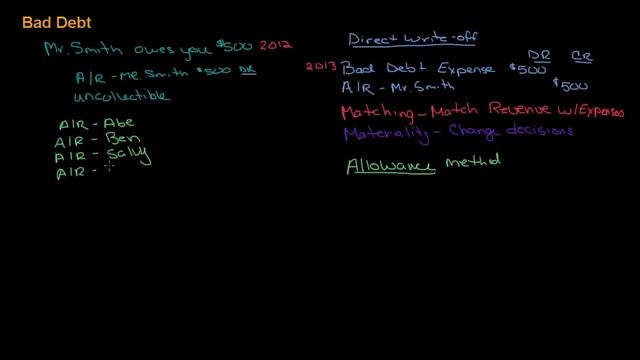 Bad Debt
Mr. Smith owes you $500 2012
A/R - Mr. Smith $500 DR
uncollectible
A/R - Abe
A/R - Ben
A/R - Sally
A/R -
Direct Write-off
DR CR
2013 Bad Debt Expense $500
A/R - Mr. Smith $500
Matching - Match Revenue w/Expenses
Materiality - Change decisions
Allowance method